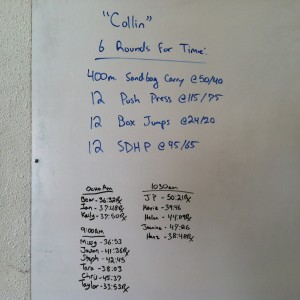 "Collin"
6 Rounds For Time:
400m Sandbag Carry @ 50/40
12 Push Press @ 115/75
12 Box Jumps @ 24/20
12 SDHP @ 95/65
Bear - 36:32Rx
Ian - 37:48Rx
Kelly - 37:50Rx
9:00am
Missy - 36:53
Jason - 41:36Rx
Steph - 42:45
Tara - 38:03
Chris - 45:37
Taylor - 31:53Rx
10:30am
JP - 50:21Rx
- 39:46
Helen - 44:09Rx
Jasmine - 47:26
- 38:48Rx